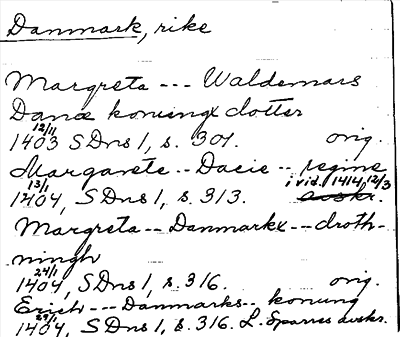 Danmark, rike
Margreta --- Waldemars
Danæ konungx dotter
12/11
1403 SDns 1, s. 301. orig.
Margarete -- Dacie -- regine
13/1 i vid. 1414, 12/3
1404, SDns 1, s. 313. avskr.
Margreta -- Danmarkx -- droth-
ningh
24/1
1404, SDns 1, s. 316. orig.
Erich --- Danmarks -- konung
29/1
1404, SDns 1, s. 316. L. Sparres avskr.